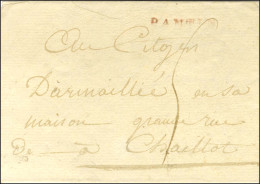 Au Citoyen
Darmaillié en sa
maison grande rue
à Chaillot